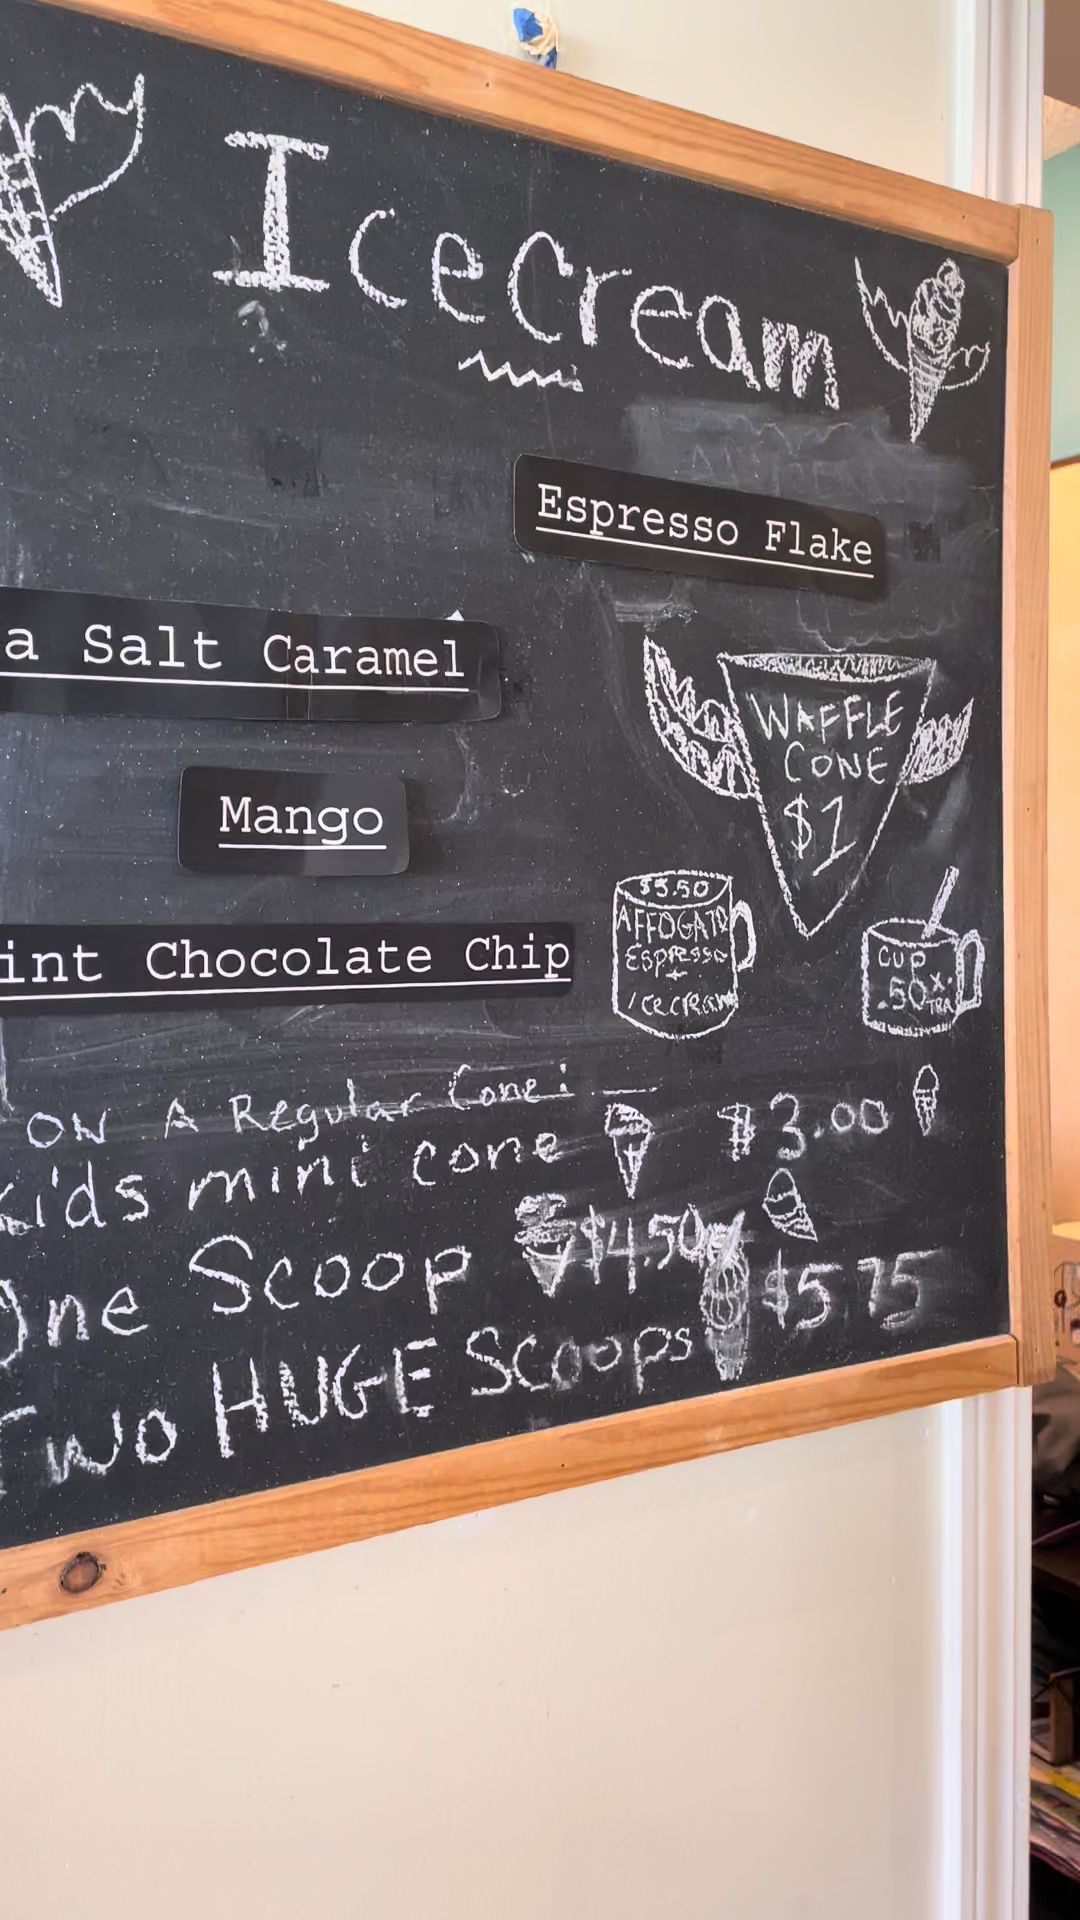 Icecream
Espresso Flake
a Salt Caramel
Mango
int Chocolate Chip
WAFFLE
CONE
$1
$5.50
AFFOGATO
Espresso
+
Icecream
CUP
.50 X-
TRA
ON A Regular Cone:
Kids mini cone $3.00
One Scoop $4.50
Two HUGE Scoops $5.75